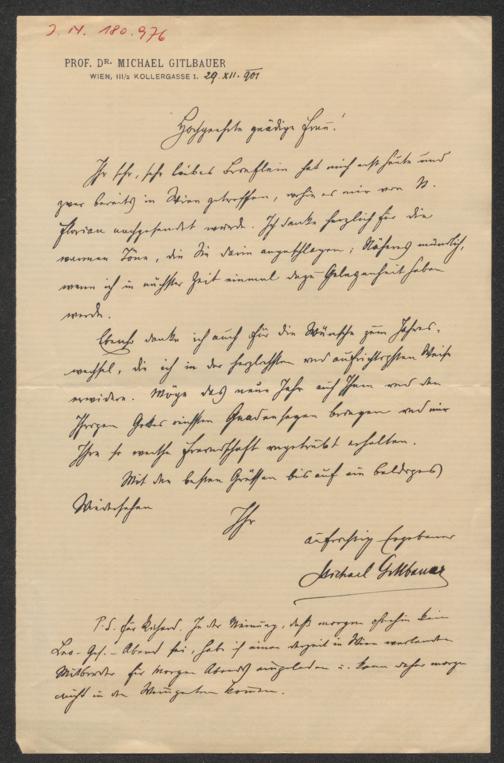 J. N. 180.976
PROF. DR. MICHAEL GITLBAUER
WIEN, III/2 KOLLERGASSE 1. 29 XII. 901
Hochgeehrte gnädige Frau!
Ihr sehr, sehr liebes Brieflein hat mich erst heute und
zwar bereits in Wien getroffen, wohin es mir von St.
Florian nachgesendet wurde. Ich danke herzlich für die
warmen Töne, die Sie darin angeschlagen; Näheres mündlich,
wenn ich in nächster Zeit einmal dazu Gelegenheit haben
werde.
Ebenso danke ich auch für die Wünsche zum Jahres-
wechsel, die ich in der herzlichsten und aufrichtigsten Weise
erwidere. Möge das neue Jahr auch Ihnen und den
Ihrigen Gottes reichsten Gnadensegen bringen und mir
Ihre so werthe Freundschaft ungetrübt erhalten.
Mit den besten Grüssen bis auf ein baldiges
Wiedersehen
Ihr
aufrichtig Ergebener
Michael Gitlbauer
P.S. für Richard. In der Meinung, daß morgen ohnehin kein
Leo-Ges.-Abend sei, habe ich einen derzeit in Wien weilenden
Mitbruder für morgen Abends eingeladen u. kann daher morgen
nicht in den kommen.